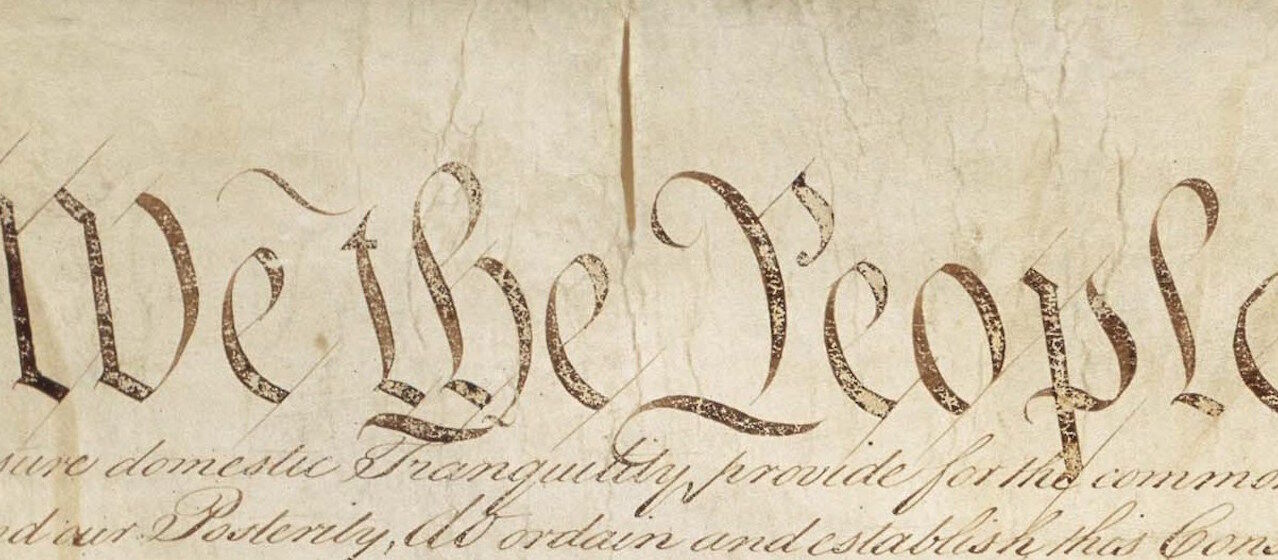 We the People
sure domestic Tranquility, provide for the commo
nd our Posterity, do ordain and establish this Cons